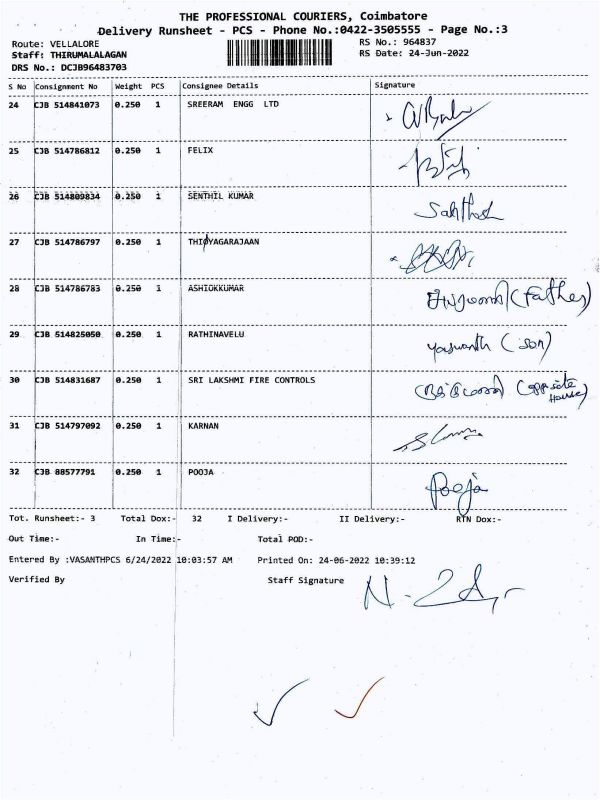 THE PROFESSIONAL COURIERS, Coimbatore
Delivery Runsheet - PCS - Phone No.:0422-3505555 - Page No.:3
Route: VELLALORE RS No.: 964837
Staff: THIRUMALALAGAN RS Date: 24-Jun-2022
DRS No.: DCJB96483703
S No Consignment No Weight PCS Consignee Details Signature
24 CJB 514841073 0.250 1 SREERAM ENGG LTD
25 CJB 514786812 0.250 1 FELIX
26 CJB 514809834 0.250 1 SENTHIL KUMAR
27 CJB 514786797 0.250 1 THIOYAGARAJAAN
28 CJB 514786783 0.250 1 ASHIOKKUMAR (Father)
29 CJB 514825050 0.250 1 RATHINAVELU Yaswanth (son)
30 CJB 514831687 0.250 1 SRI LAKSHMI FIRE CONTROLS (opposite
House)
31 CJB 514797092 0.250 1 KARNAN
32 CJB 88577791 0.250 1 POOJA Pooja
Tot. Runsheet:- 3 Total Dox:- 32 I Delivery:- II Delivery:- RTN Dox:-
Out Time:- In Time:- Total POD:-
Entered By :VASANTHPCS 6/24/2022 10:03:57 AM Printed On: 24-06-2022 10:39:12
Verified By Staff Signature